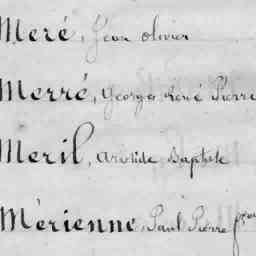 Meré, Jean Olivier
Merré, Georges René Pierre
Meril, Aristide Baptiste
Mérienne, Paul Pierre